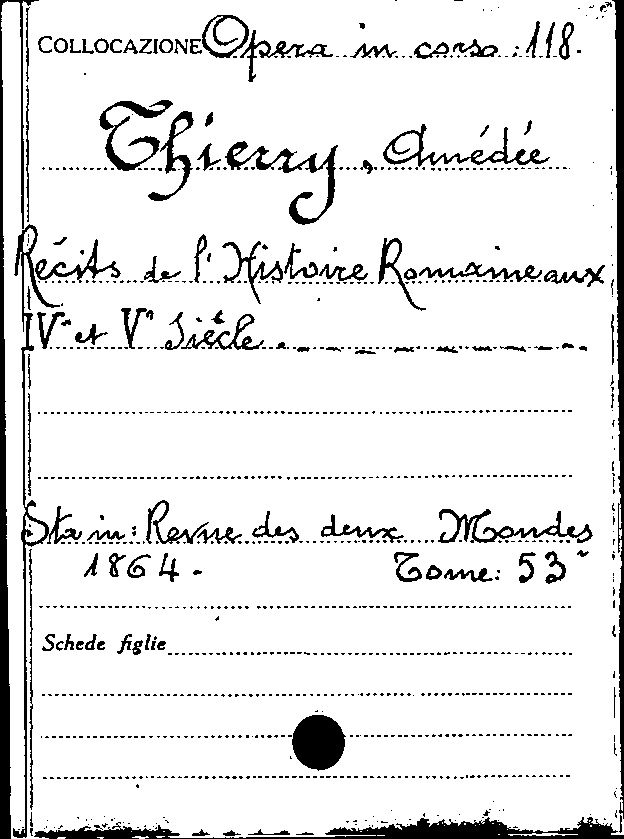 COLLOCAZIONE Opera in corso: 118.
Thierry, Amédée
Récits de l'Histoire Romaine aux
IVe et Ve Siècle.
Sta in: Revue des deux Mondes
1864. Tome: 53°
Schede figlie